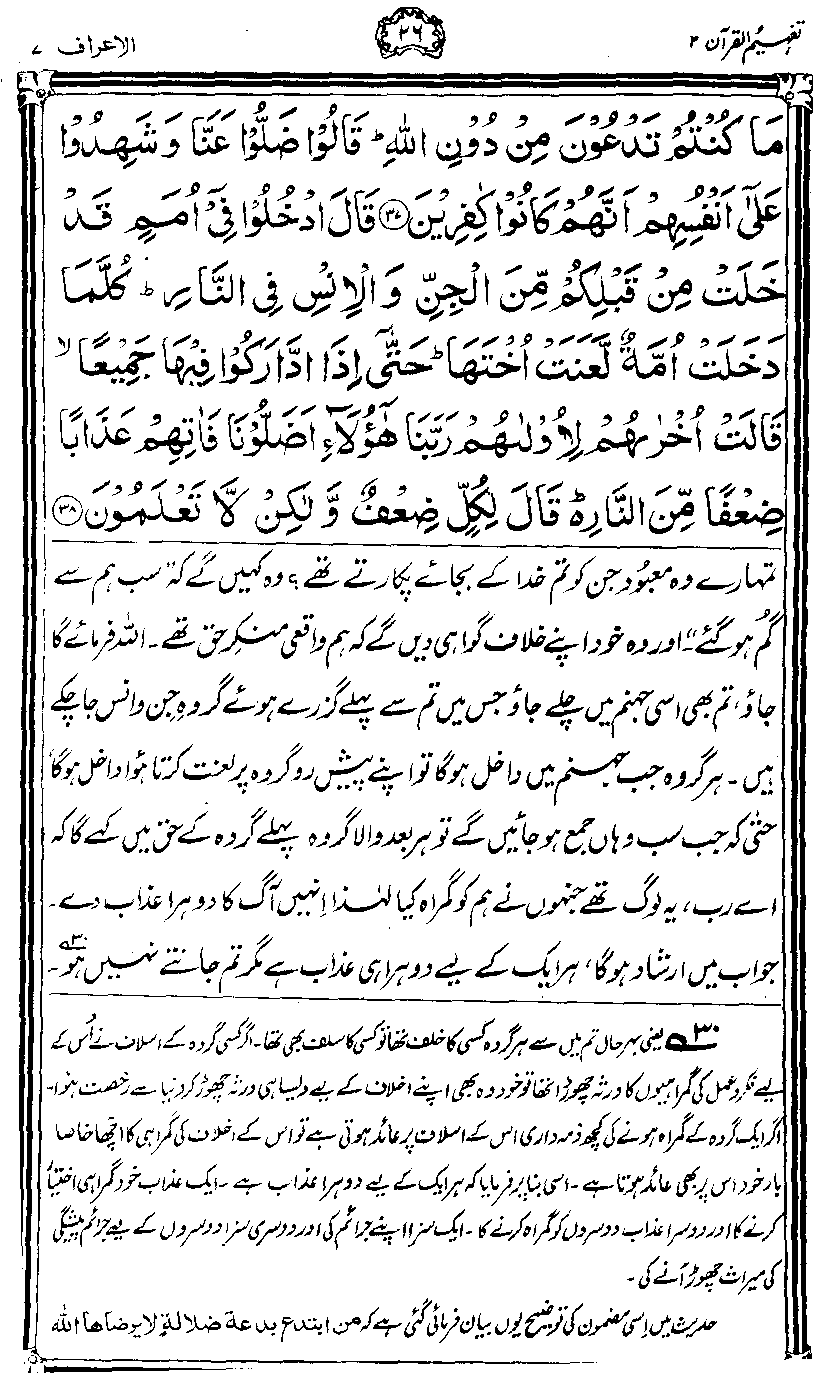 تفہیم القرآن ۲
۲۶
الاعراف ۷
مَا كُنْتُمْ تَدْعُوْنَ مِنْ دُوْنِ اللّٰهِ ؕ قَالُوْا ضَلُّوْا عَنَّا وَشَهِدُوْا
عَلٰۤى اَنْفُسِهِمْ اَنَّهُمْ كَانُوْا كٰفِرِيْنَ ۳۷ قَالَ ادْخُلُوْا فِيْۤ اُمَمٍ قَدْ
خَلَتْ مِنْ قَبْلِكُمْ مِّنَ الْجِنِّ وَالْاِنْسِ فِي النَّارِ ؕ كُلَّمَا
دَخَلَتْ اُمَّةٌ لَّعَنَتْ اُخْتَهَا ؕ حَتّٰۤى اِذَا ادَّارَكُوْا فِيْهَا جَمِيْعًا ۙ
قَالَتْ اُخْرٰىهُمْ لِاُوْلٰىهُمْ رَبَّنَا هٰۤؤُلَآءِ اَضَلُّوْنَا فَاٰتِهِمْ عَذَابًا
ضِعْفًا مِّنَ النَّارِ ؕ قَالَ لِكُلٍّ ضِعْفٌ وَّلٰكِنْ لَّا تَعْلَمُوْنَ ۳۸
تمہارے وہ معبود جن کو تم خدا کے بجائے پکارتے تھے؟ وہ کہیں گے کہ "سب ہم سے
گم ہو گئے"۔ اور وہ خود اپنے خلاف گواہی دیں گے کہ ہم واقعی منکرِ حق تھے۔ اللہ فرمائے گا
جاؤ، تم بھی اسی جہنم میں چلے جاؤ جس میں تم سے پہلے گزرے ہوئے گروہِ جن و انس جا چکے
ہیں۔ ہر گروہ جب جہنم میں داخل ہوگا تو اپنے پیش رو گروہ پر لعنت کرتا ہوا داخل ہوگا،
حتیٰ کہ جب سب وہاں جمع ہو جائیں گے تو ہر بعد والا گروہ پہلے گروہ کے حق میں کہے گا کہ
اے رب، یہ لوگ تھے جنہوں نے ہم کو گمراہ کیا لہٰذا اِنہیں آگ کا دوہرا عذاب دے۔
جواب میں ارشاد ہوگا، ہر ایک کے لیے دوہرا ہی عذاب ہے مگر تم جانتے نہیں ہو۳۰۔
۳۰ یعنی بہرحال تم میں سے ہر گروہ کسی کا خلف تھا تو کسی کا سلف بھی تھا۔ اگر کسی گروہ کے اسلاف نے اُس کے
لیے فکر و عمل کی گمراہیوں کا ورثہ چھوڑا تھا تو خود وہ بھی اپنے اخلاف کے لیے ویسا ہی ورثہ چھوڑ کر دنیا سے رخصت ہوا۔
اگر ایک گروہ کے گمراہ ہونے کی کچھ ذمہ داری اس کے اسلاف پر عائد ہوتی ہے تو اس کے اخلاف کی گمراہی کا اچھا خاصا
بار خود اس پر بھی عائد ہوتا ہے۔ اسی بنا پر فرمایا کہ ہر ایک کے لیے دوہرا عذاب ہے۔ ایک عذاب خود گمراہی اختیار
کرنے کا اور دوسرا عذاب دوسروں کو گمراہ کرنے کا۔ ایک سزا اپنے جرائم کی اور دوسری سزا دوسروں کے لیے جرائم پیشگی
کی میراث چھوڑ آنے کی۔
حدیث میں اِسی مضمون کی توضیح یوں بیان فرمائی گئی ہے کہ من ابتدع بدعة ضلالة لا يرضاها الله